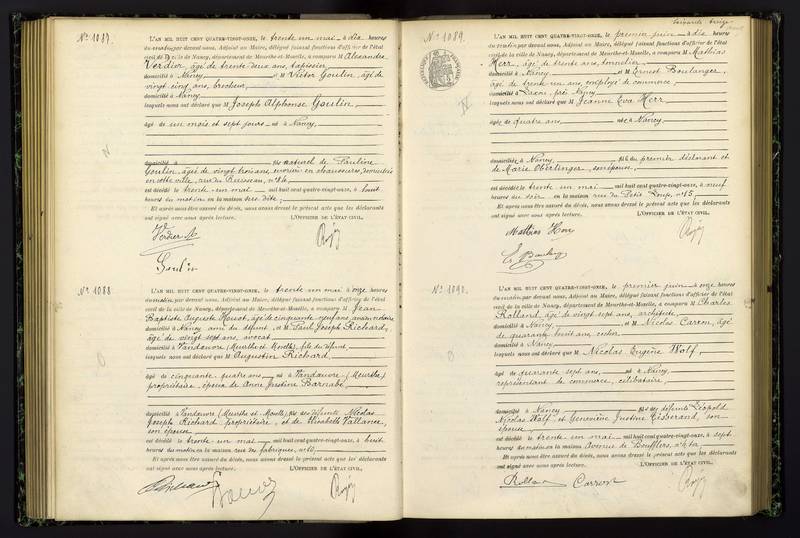 N° 1087.
L'AN MIL HUIT CENT QUATRE-VINGT-ONZE, le trente un mai à dix heures
du matin par devant nous, Adjoint au Maire, délégué faisant fonctions d'officier de l'état
civil de la ville de Nancy, département de Meurthe-et-Moselle, a comparu M Alexandre
Verdier, âgé de trente deux ans, tapissier,
domicilié à Nancy et M Victor Goulin, âgé de
vingt cinq ans, brocheur,
domicilié à Nancy
lesquels nous ont déclaré que M Joseph Alphonse Goulin,
âgé de un mois et sept jours né à Nancy,
domicilié à fils naturel de Pauline
Goulin, âgée de vingt trois ans, ouvrière en chaussures, domiciliée
en cette ville, rue du Ruisseau, n°
est décédé le trente un mai mil huit cent quatre-vingt-onze, à huit
heures du matin en la maison sus dite;
Et après nous être assuré du décès, nous avons dressé le présent acte que les déclarants
ont signé avec nous après lecture. L'OFFICIER DE L'ÉTAT CIVIL,
Verdier A
Goulin
N° 1088
L'AN MIL HUIT CENT QUATRE-VINGT-ONZE, le trente un mai à onze heures
du matin, par devant nous, Adjoint au Maire, délégué faisant fonctions d'officier de l'état
civil de la ville de Nancy, département de Meurthe-et-Moselle, a comparu M Jean
Baptiste Auguste, âgé de cinquante neuf ans, ancien notaire
domicilié à Nancy ami du défunt et M Paul Joseph Richard,
âgé de vingt sept ans, avocat
domicilié à Vandœuvre (Meurthe et Moselle), fils du défunt,
lesquels nous ont déclaré que M Augustin Richard
âgé de cinquante quatre ans né à Vandœuvre (Meurthe)
propriétaire, époux de Anne Justine Barnabé
domicilié à Vandœuvre (Meurthe et Moselle) fils des défunts Nicolas
Joseph Richard propriétaire, et de Elisabeth Vallance,
son épouse
est décédé le trente un mai mil huit cent quatre-vingt-onze, à huit
heures du matin en la maison rue des fabriques, n°
Et après nous être assuré du décès, nous avons dressé le présent acte que les déclarants
ont signé avec nous après lecture. L'OFFICIER DE L'ÉTAT CIVIL,
N° 1089.
L'AN MIL HUIT CENT QUATRE-VINGT-ONZE, le premier juin à dix heures
du matin par devant nous, Adjoint au Maire, délégué faisant fonctions d'officier de l'état
civil de la ville de Nancy, département de Meurthe-et-Moselle, a comparu M Mathias
Herr, âgé de trente ans, tonnelier
domicilié à Nancy et M Ernest Boulanger,
âgé de trente un ans, employé de commerce,
domicilié à près Nancy
lesquels nous ont déclaré que M Jeanne Eva Herr
âgée de quatre ans née à Nancy
domiciliée à Nancy fille du premier déclarant et
de Marie Oberlinger, son épouse
est décédée le trente un mai mil huit cent quatre-vingt-onze, à neuf
heures du soir en la maison rue du Petit n° 15
Et après nous être assuré du décès, nous avons dressé le présent acte que les déclarants
ont signé avec nous après lecture. L'OFFICIER DE L'ÉTAT CIVIL,
Mathias Herr
N° 1090.
L'AN MIL HUIT CENT QUATRE-VINGT-ONZE, le premier juin à onze heures
du matin, par devant nous, Adjoint au Maire, délégué faisant fonctions d'officier de l'état
civil de la ville de Nancy, département de Meurthe-et-Moselle, a comparu M Charles
Rolland, âgé de vingt sept ans, architecte,
domicilié à Nancy, et M Nicolas Carson, âgé
de quarante huit ans, cocher
domicilié à Nancy
lesquels nous ont déclaré que M Nicolas Eugène Wolf,
âgé de quarante sept ans, né à Nancy
représentant de commerce, célibataire
domicilié à Nancy fils des défunts Léopold
Nicolas Wolf, et Geneviève Justine Tisserand, son
épouse
est décédé le trente un mai mil huit cent quatre-vingt-onze, à sept
heures du matin en la maison avenue de Boufflers, n°
Et après nous être assuré du décès, nous avons dressé le présent acte que les déclarants
ont signé avec nous après lecture. L'OFFICIER DE L'ÉTAT CIVIL,
Rolland